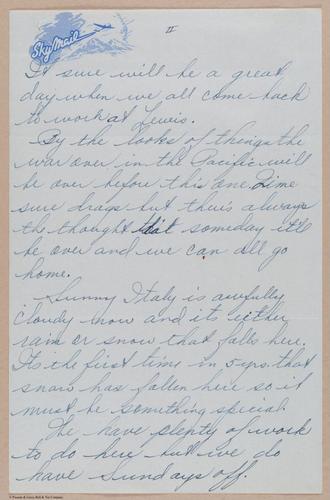 Sky Mail
II
It sure will be a great
day when we all come back
to work at Lewis.
By the looks of things the
war over in the Pacific will
be over before this one. Time
sure drags but there's always
the thought that someday it'll
be over and we can all go
home.
Sunny Italy is awfully
cloudy now and its either
rain or snow that falls here.
Its the first time in 5 yrs. that
snow has fallen here so it
must be something special.
We have plenty of work
to do here but we do
have Sundays off.